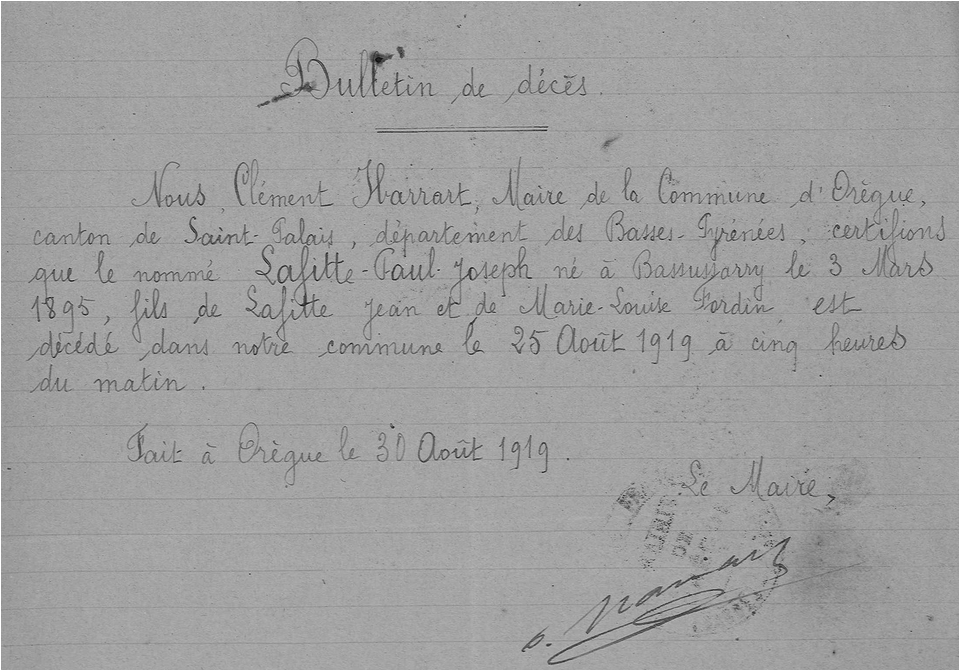 Bulletin de décès.
Nous, Clément Harrart, Maire de la Commune d'Orègue,
canton de Saint-Palais, département des Basses-Pyrénées, certifions
que le nommé Lafitte-Paul-Joseph né à Bassussarry le 3 Mars
1895, fils de Lafitte Jean et de Marie-Louise Fordin est
décédé dans notre commune le 25 Août 1919 à cinq heures
du matin.
Fait à Orègue le 30 Août 1919.
Le Maire,